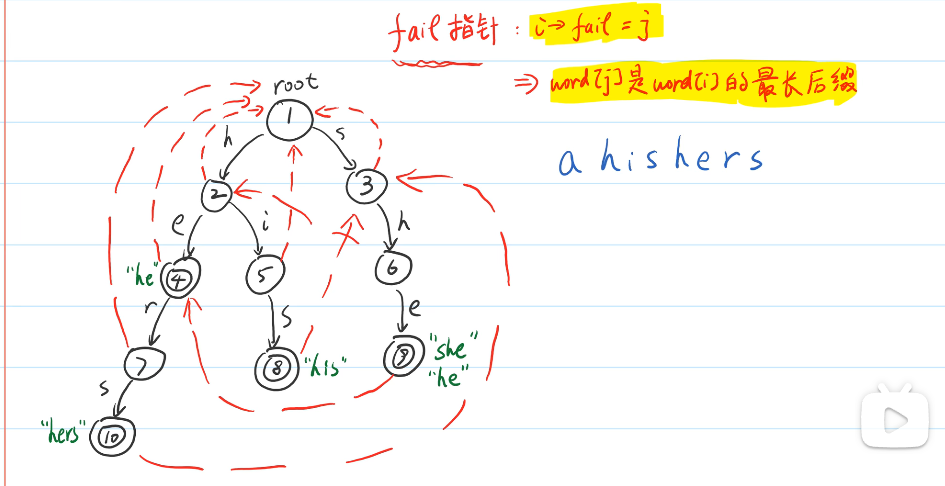 fail指针：i→fail = j
⇒ word[j]是word[i]的最长后缀
a hishers
root
1
h
s
2
3
e
i
h
"he"
4
5
6
r
s
e
7
8
"his"
9
"she"
"he"
s
"hers"
10